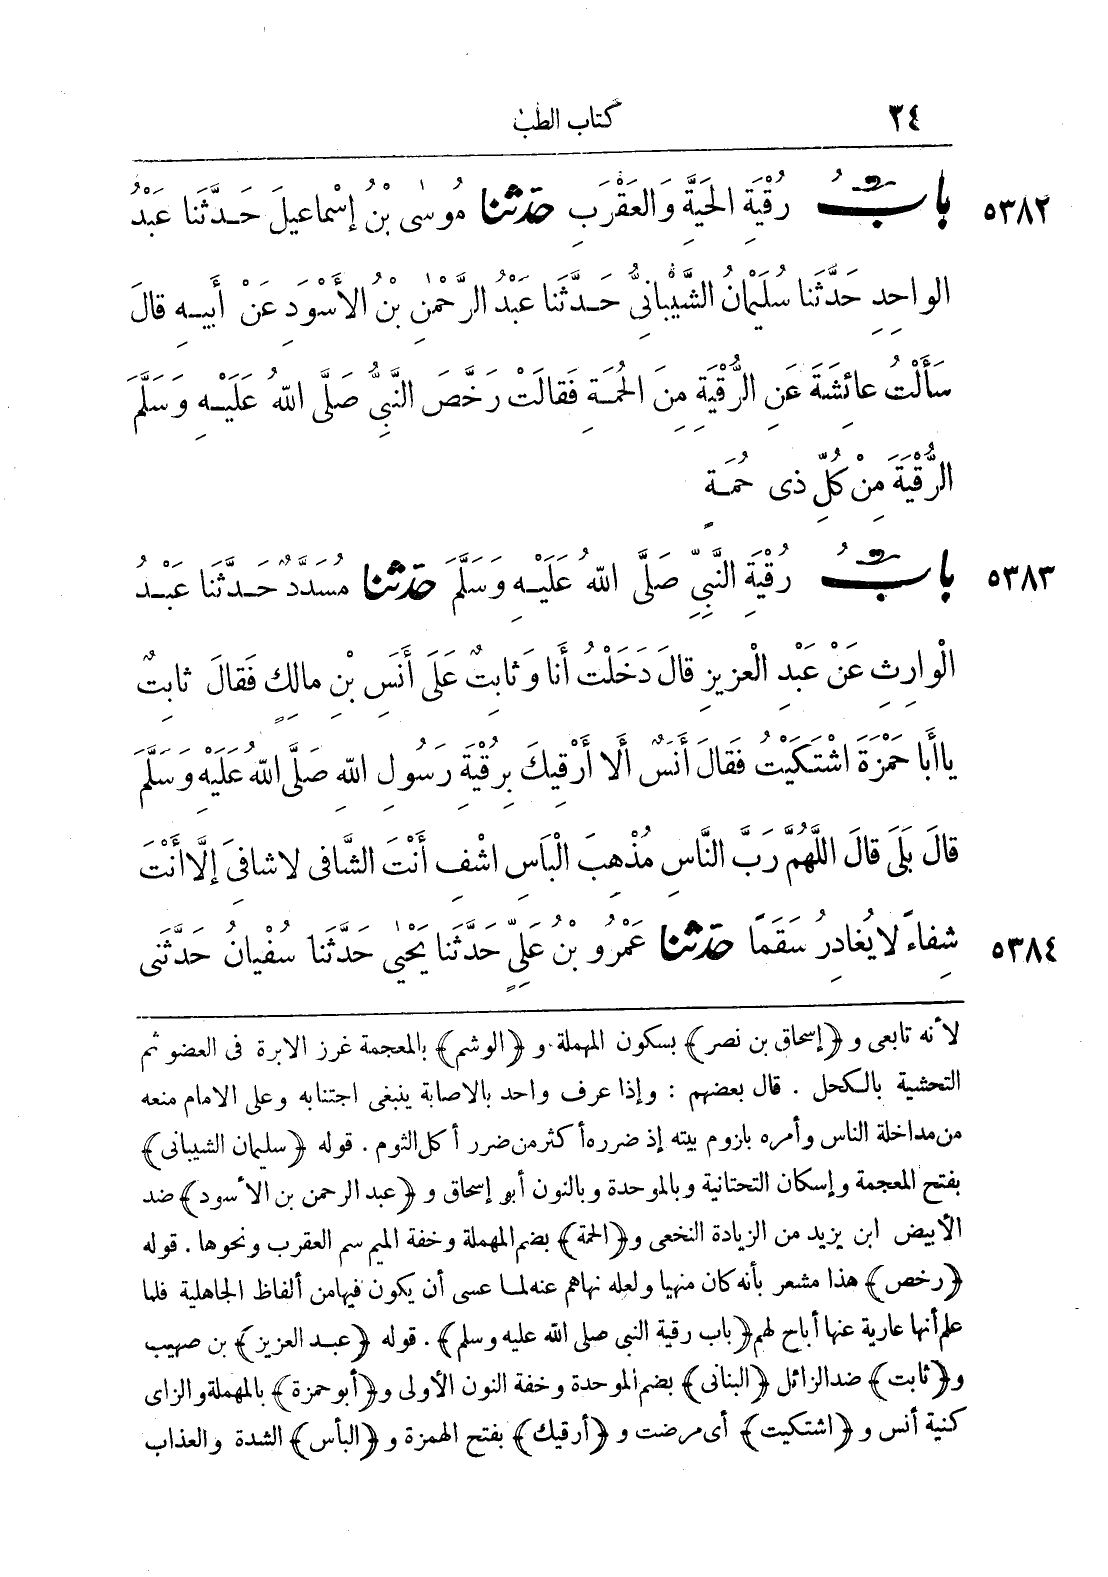 ٣٤ كتاب الطب
٥٣٨٢ بابُ رُقْيَةِ الحَيَّةِ وَالعَقْرَبِ حدثنا مُوسَى بْنُ إِسْماعِيلَ حَدَّثَنا عَبْدُ
الواحِدِ حَدَّثَنا سُلَيْمانُ الشَّيْبانِيُّ حَدَّثَنا عَبْدُ الرَّحْمٰنِ بْنُ الأَسْوَدِ عَنْ أَبِيهِ قالَ
سَأَلْتُ عائِشَةَ عَنِ الرُّقْيَةِ مِنَ الحُمَةِ فَقالَتْ رَخَّصَ النَّبِيُّ صَلَّى اللهُ عَلَيْهِ وَسَلَّمَ
الرُّقْيَةَ مِنْ كُلِّ ذِى حُمَةٍ
٥٣٨٣ بابُ رُقْيَةِ النَّبِيِّ صَلَّى اللهُ عَلَيْهِ وَسَلَّمَ حدثنا مُسَدَّدٌ حَدَّثَنا عَبْدُ
الْوارِثِ عَنْ عَبْدِ الْعزِيزِ قالَ دَخَلْتُ أَنا وَثابِتٌ عَلَى أَنَسِ بْنِ مالِكٍ فَقالَ ثابِتٌ
ياأَبا حَمْزَةَ اشْتَكَيْتُ فَقالَ أَنَسٌ أَلا أَرْقِيكَ بِرُقْيَةِ رَسُولِ اللهِ صَلَّى اللهُ عَلَيْهِ وَسَلَّمَ
قالَ بَلَى قالَ اللَّهُمَّ رَبَّ النَّاسِ مُذْهِبَ الْباسِ اشْفِ أَنْتَ الشَّافى لاشافىَ إِلَّا أَنْتَ
٥٣٨٤ شِفاءً لا يُغادِرُ سَقَمًا حدثنا عَمْرُو بْنُ عَلِيٍّ حَدَّثَنا يَحْيٰى حَدَّثَنا سُفْيانُ حَدَّثَنى
لأنه تابعى و ﴿إسحاق بن نصر﴾ بسكون المهملة و ﴿الوشم﴾ بالمعجمة غرز الابرة فى العضو ثم
التحشية بالكحل . قال بعضهم : وإذا عرف واحد بالاصابة ينبغى اجتنابه وعلى الامام منعه
من مداخلة الناس وأمره بلزوم بيته إذ ضرره أكثر من ضرر أكل الثوم . قوله ﴿سليمان الشيبانى﴾
بفتح المعجمة وإسكان التحتانية وبالموحدة وبالنون أبو إسحاق و ﴿عبد الرحمن بن الأسود﴾ ضد
الأبيض ابن يزيد من الزيادة النخعى و ﴿الحمة﴾ بضم المهملة وخفة الميم سم العقرب ونحوها . قوله
﴿رخص﴾ هذا مشعر بأنه كان منهيا ولعله نهاهم عنه لما عسى أن يكون فيها من ألفاظ الجاهلية فلما
علم أنها عارية عنها أباح لهم ﴿باب رقية النبى صلى الله عليه وسلم﴾ . قوله ﴿عبد العزيز﴾ بن صهيب
و ﴿ثابت﴾ ضد الزائل ﴿البنانى﴾ بضم الموحدة وخفة النون الأولى و ﴿أبو حمزة﴾ بالمهملة والزاى
كنية أنس و ﴿اشتكيت﴾ أى مرضت و ﴿أرقيك﴾ بفتح الهمزة و ﴿البأس﴾ الشدة والعذاب